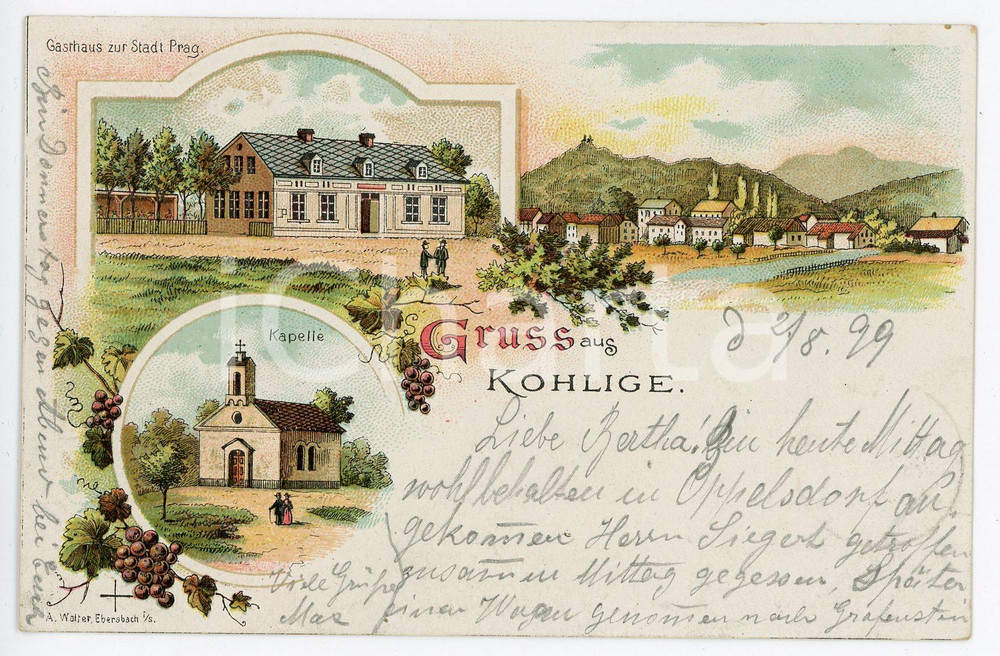 Gasthaus zur Stadt Prag.
Kapelle
Gruss aus
KOHLIGE.
d 2/8. 99
Liebe Bertha! Bin heute Mittag
wohlbehalten in Oppelsdorf an
gekom̅en Herrn Siegert getroffen
zusam̅en Mittag gegessen, Später
einen Wagen genom̅en nach Grafenstein
Viele Grüße
Max
Bin Donnerstag gegen Abend bei Euch
A. Walter, Ebersbach i/s.